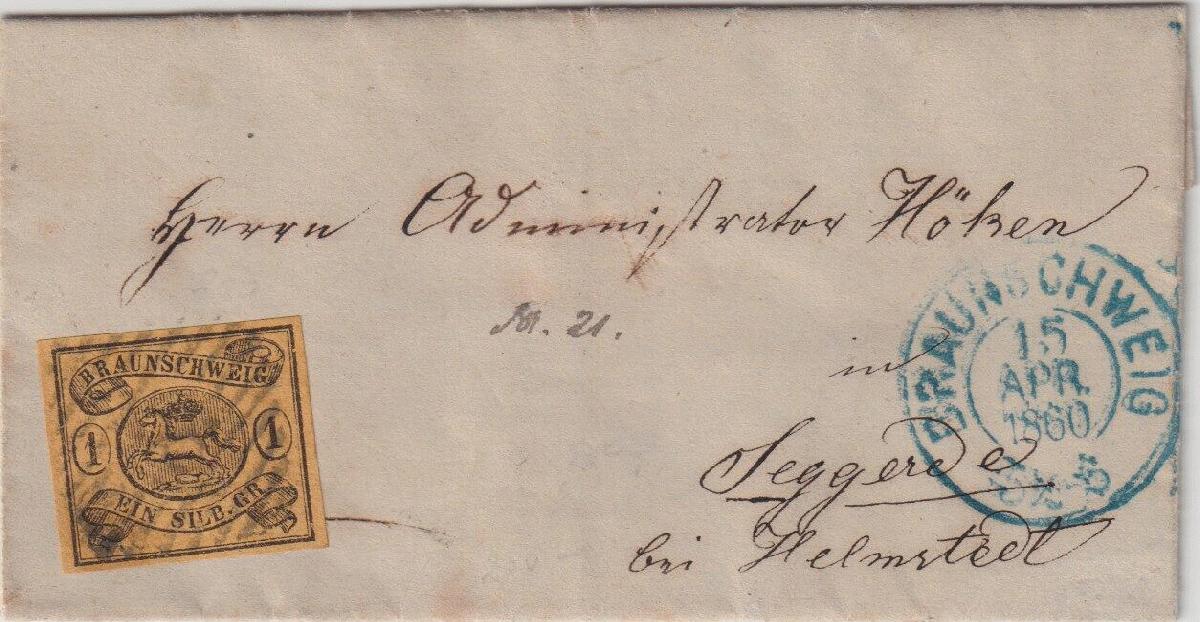 Herrn Administrator Höken
No. 21.
in
Seggerde
bei Helmstedt
BRAUNSCHWEIG
1 1
EIN SILB. GR.
BRAUNSCHWEIG
15
APR.
1860